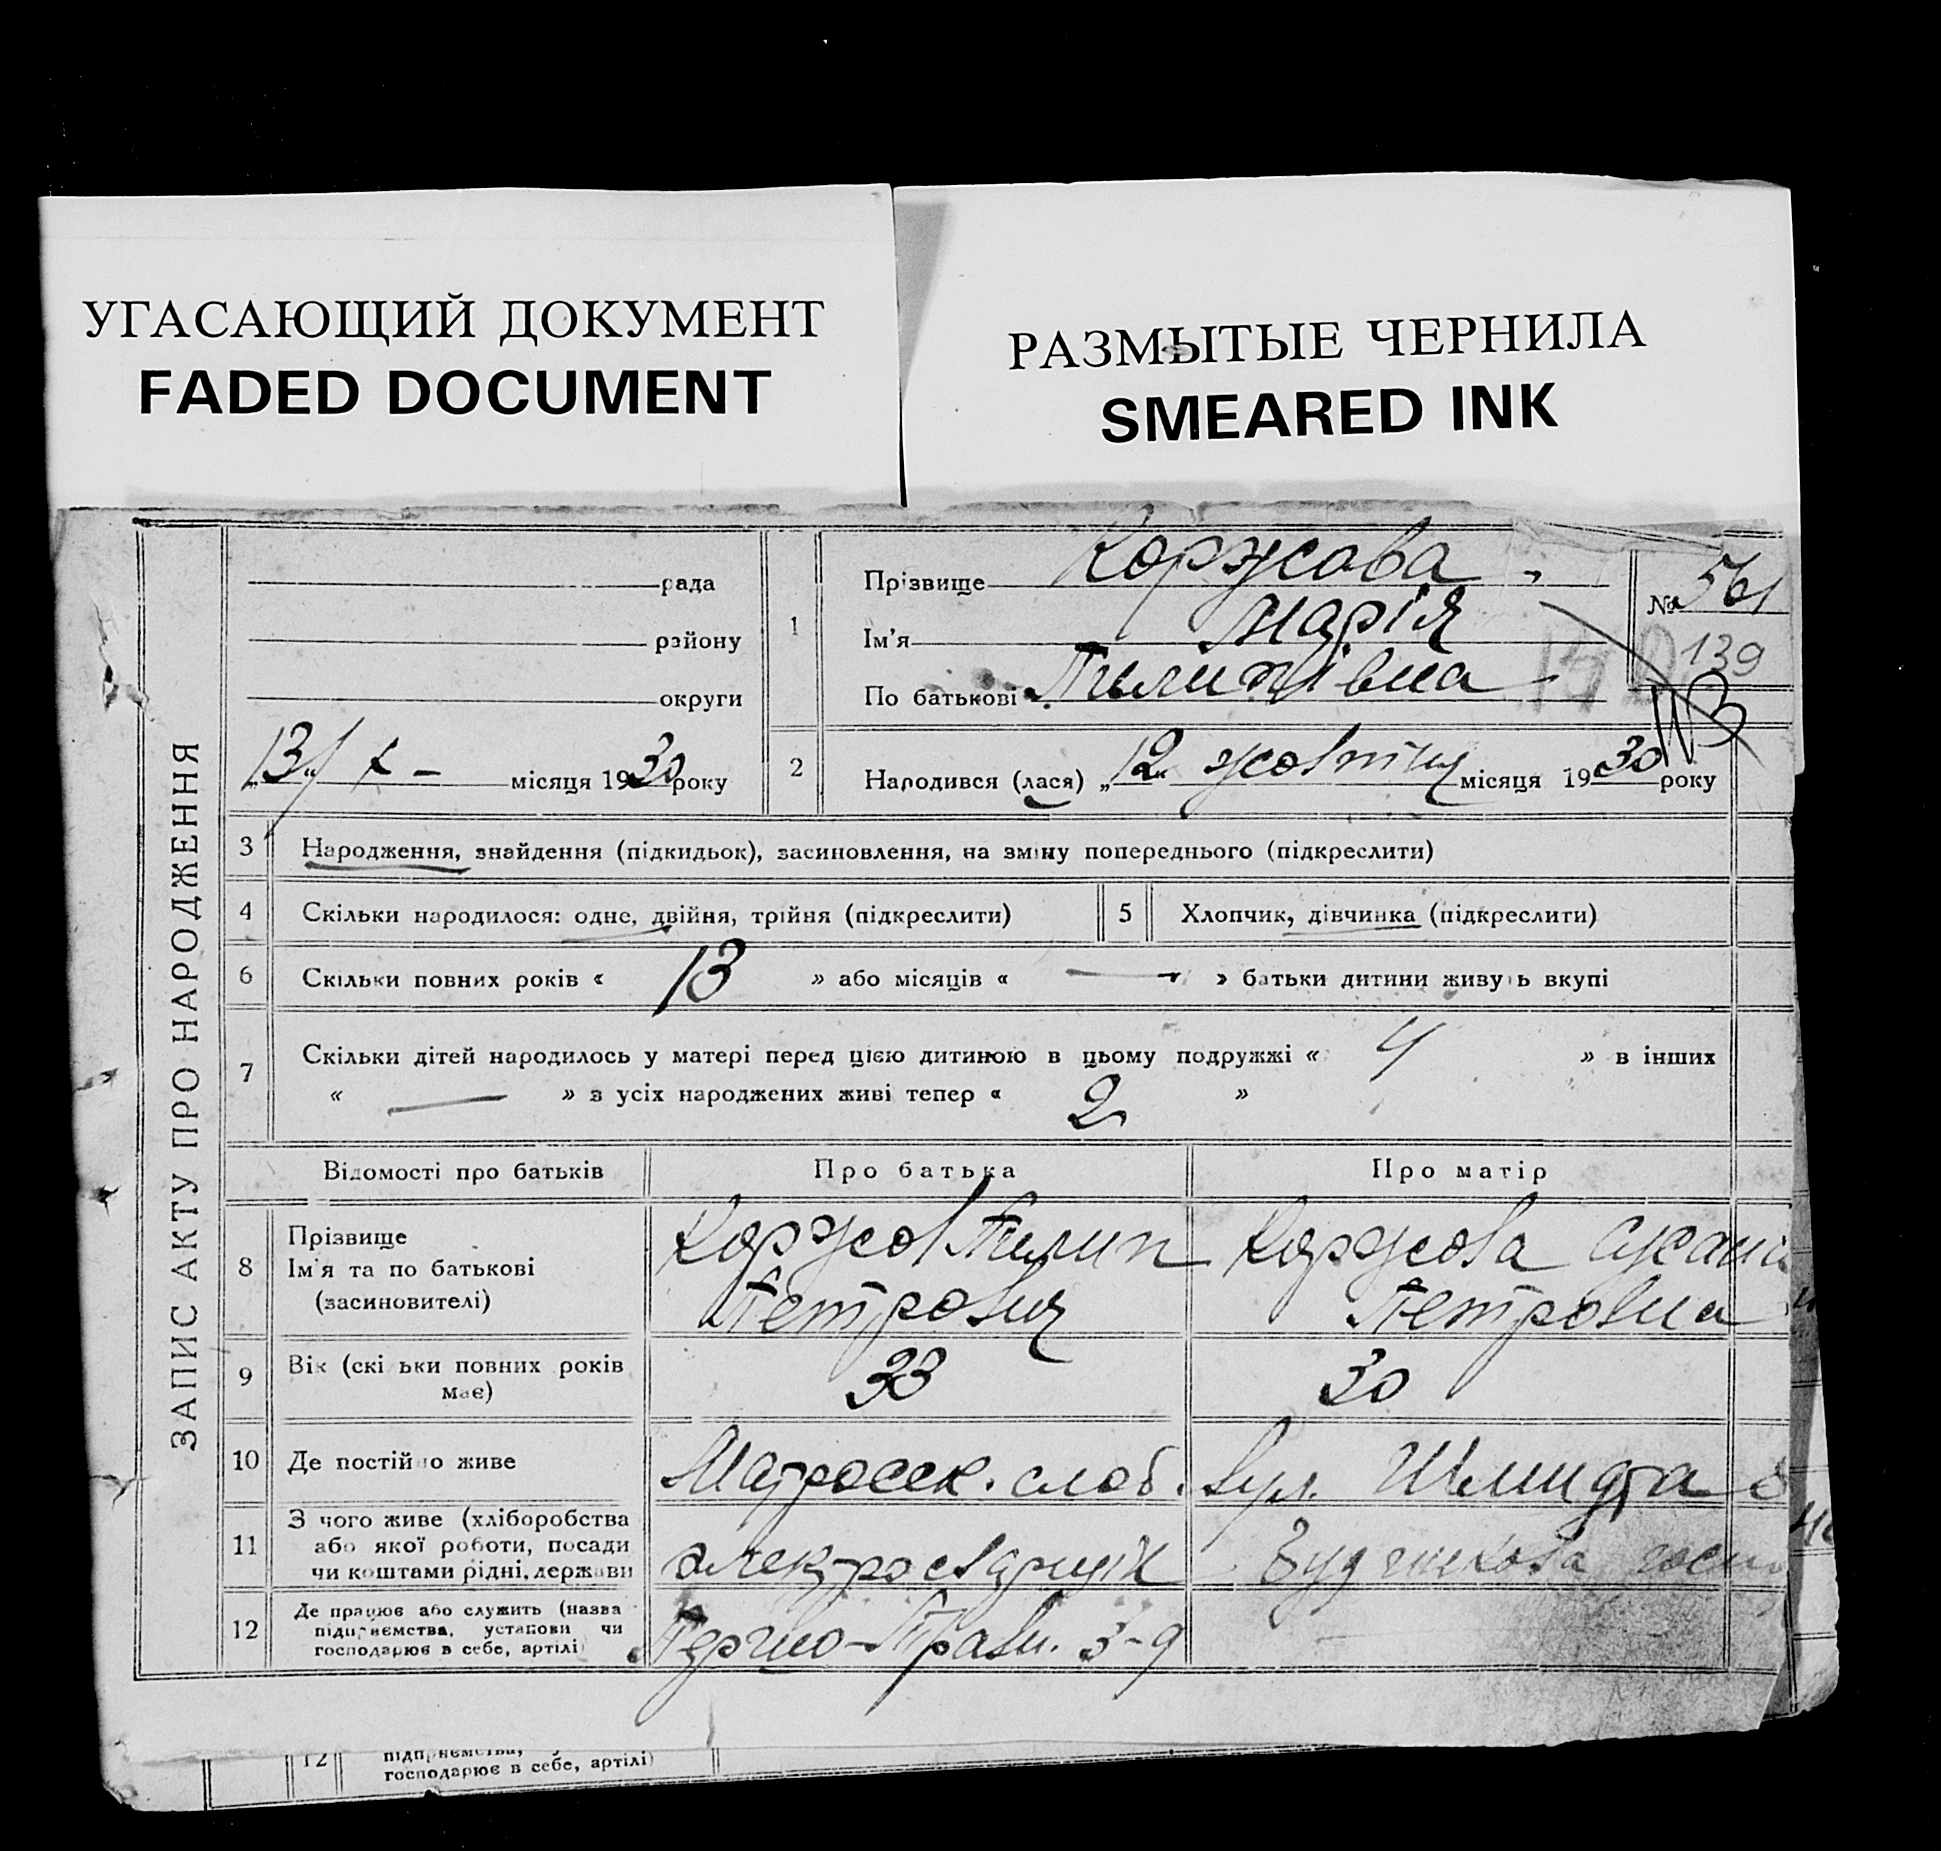 УГАСАЮЩИЙ ДОКУМЕНТ
FADED DOCUMENT
РАЗМЫТЫЕ ЧЕРНИЛА
SMEARED INK
ЗАПИС АКТУ ПРО НАРОДЖЕННЯ
рада
району
округи
„13“ X – місяця 1930 року
1 Прізвище Коржова
Ім'я Марія
По батькові Пилипівна
№ 561
139
2 Народився (лася) „12“ жовтня місяця 1930 року
3 Народження, знайдення (підкидьок), засиновлення, на зміну попереднього (підкреслити)
4 Скільки народилося: одне, двійня, трійня (підкреслити) 5 Хлопчик, дівчинка (підкреслити)
6 Скільки повних років « 13 » або місяців « — » батьки дитини живуть вкупі
7 Скільки дітей народилось у матері перед цією дитиною в цьому подружжі « 4 » в інших
« — » з усіх народжених живі тепер « 2 »
Відомості про батьків Про батька Про матір
8 Прізвище
Ім'я та по батькові
(засиновителі)
Коржов Пилип
Петрович
Коржова
Петровна
9 Вік (скільки повних років
має)
33 30
10 Де постійно живе Матросск. слоб. вул. Шмидта
11 З чого живе (хліборобства
або якої роботи, посади
чи коштами рідні, держави
електросварщик
12 Де працює або служить (назва
підприємства, установи чи
господарює в себе, артілі)
12 підприємства,
господарює в себе, артілі)